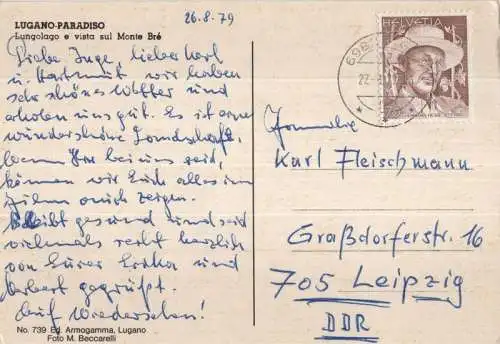 26.8.79
LUGANO-PARADISO
Lungolago e vista sul Monte Brè
Liebe Inge, lieber Karl
u. Hartmut wir haben
sehr schönes Wetter und
erholen uns gut. Es ist eine
wunderschöne Landschaft,
wenn Ihr bei uns seid,
können wir Euch alles im
Film auch zeigen.
Bleibt gesund und seid
vielmals recht herzlich
von Eurer Erika und
Herbert gegrüßt.
Auf Wiedersehen!
No. 739 Ed. Armogamma, Lugano
Foto M. Beccarelli
HELVETIA
Familie
Karl Fleischmann
Graßdorferstr. 16
705 Leipzig
DDR